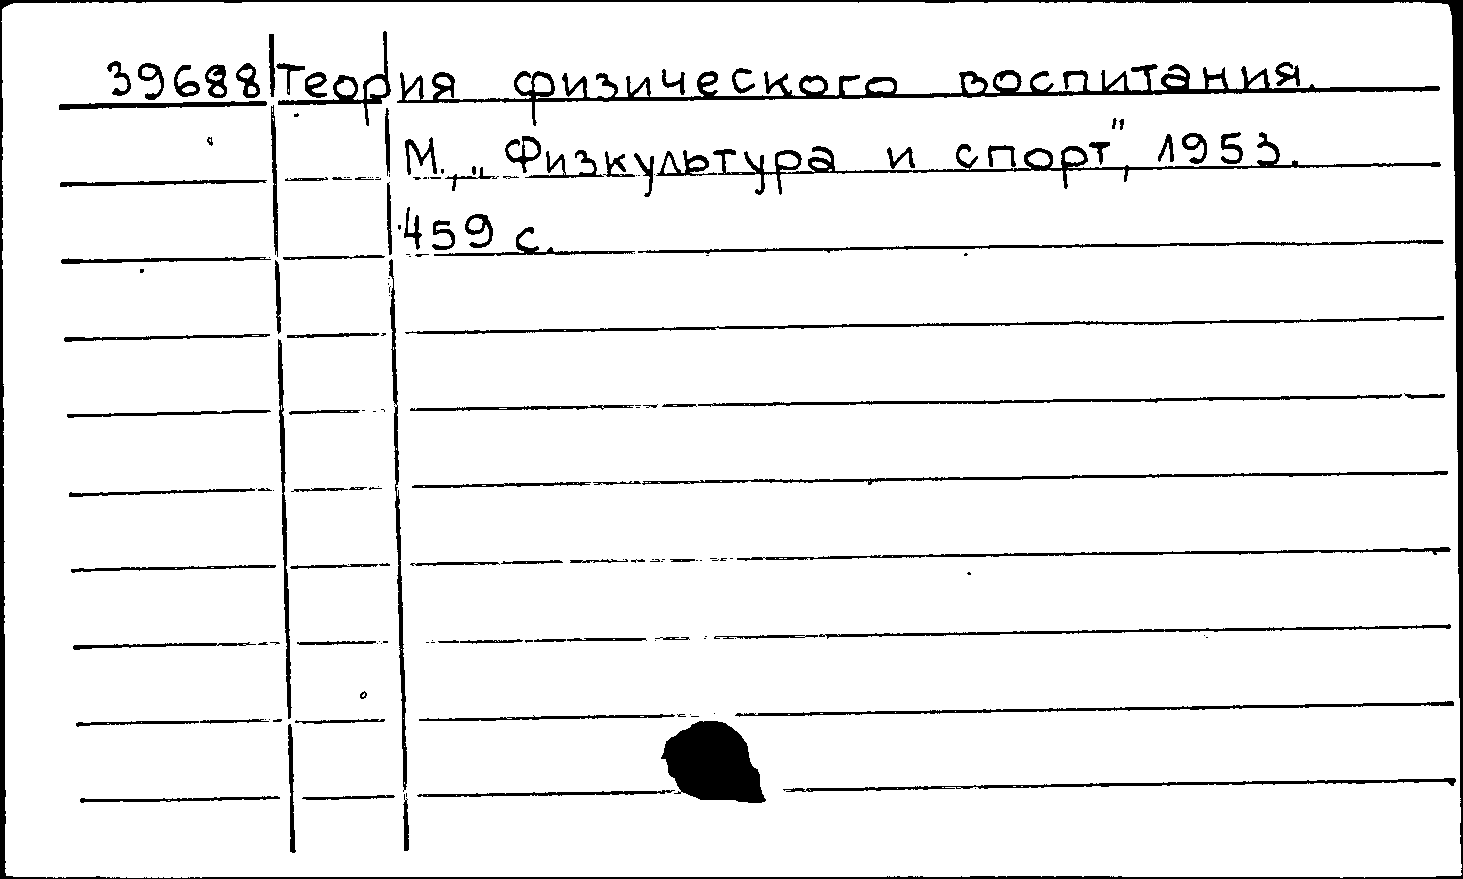 39688 Теория физического воспитания.
М., „Физкультура и спорт", 1953.
459 с.